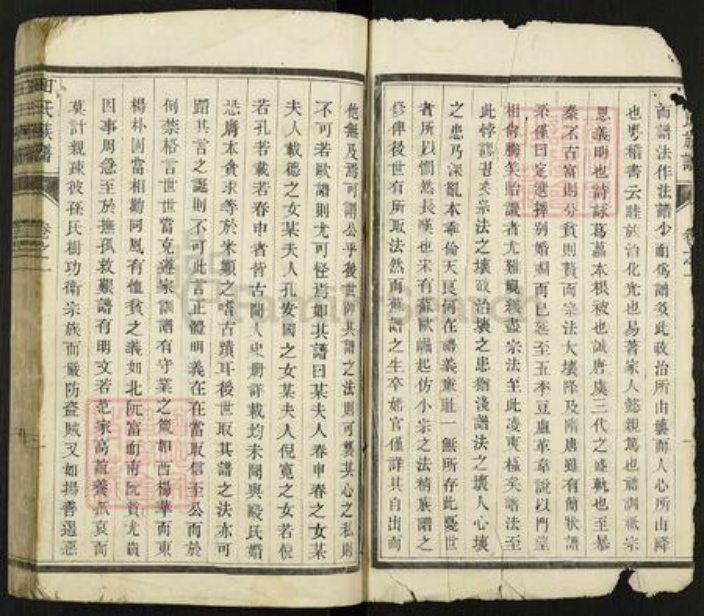 而譜法作法譜少而僞譜多此政治所由壞而人心所由降
也粤稽書云睦族治化光也易著家人懿親篤也禮訓祇宗
恩義明也詩詠葛藟本根被也誠唐虞三代之盛軌也至暴
秦不古富則分貧則贅而宗法大壞降及隋唐雖有簡狀譜
系僅曰定選擇別婚姻而已延至五季豆盧革韋說以門望
相向勝笑貽識者尤難殫述盡宗法至此凌夷極矣譜法至
此悖謬甚矣宗法之壞政治壞之患猶淺譜法之壞人心壞
之患乃深亂本率倫天良何在禮義廉恥一無所存此憂世
者所以惘然長嘆也宋有蘇歐崛起仿小宗之法精族譜之
修俾後世有所取法然而蘇譜之生卒婚官僅詳其自出而
他無及焉可謂公乎後世師其譜之法則可襲其心之私則
不可若歐譜則尤可怪焉如其譜曰某夫人春申春之女某
夫人載德之女某夫人孔安國之女某夫人倪寬之女若倪
若孔若載若春申者皆古聞人史册詳載均未聞與歐氏婚
恐膚本貪求等於米顛之嗜古蹟耳後世取其譜之法亦可
蹈其言之誕則不可此言正體明義在在當取信至公而於
倒禁格言世世當克遵家訓譜有守業之箴如西楊華而東
楊朴固當相勸同風有恤貧之義如北阮富而南阮貧尤貴
因事周急至於撫孤救艱譜有明文若范家高誼養孤哀而
莫計親疎彼孫氏樹功衛宗族而嚴防盜賊又如揚善遏惡
田氏族譜
卷之一
氏族譜
卷之一